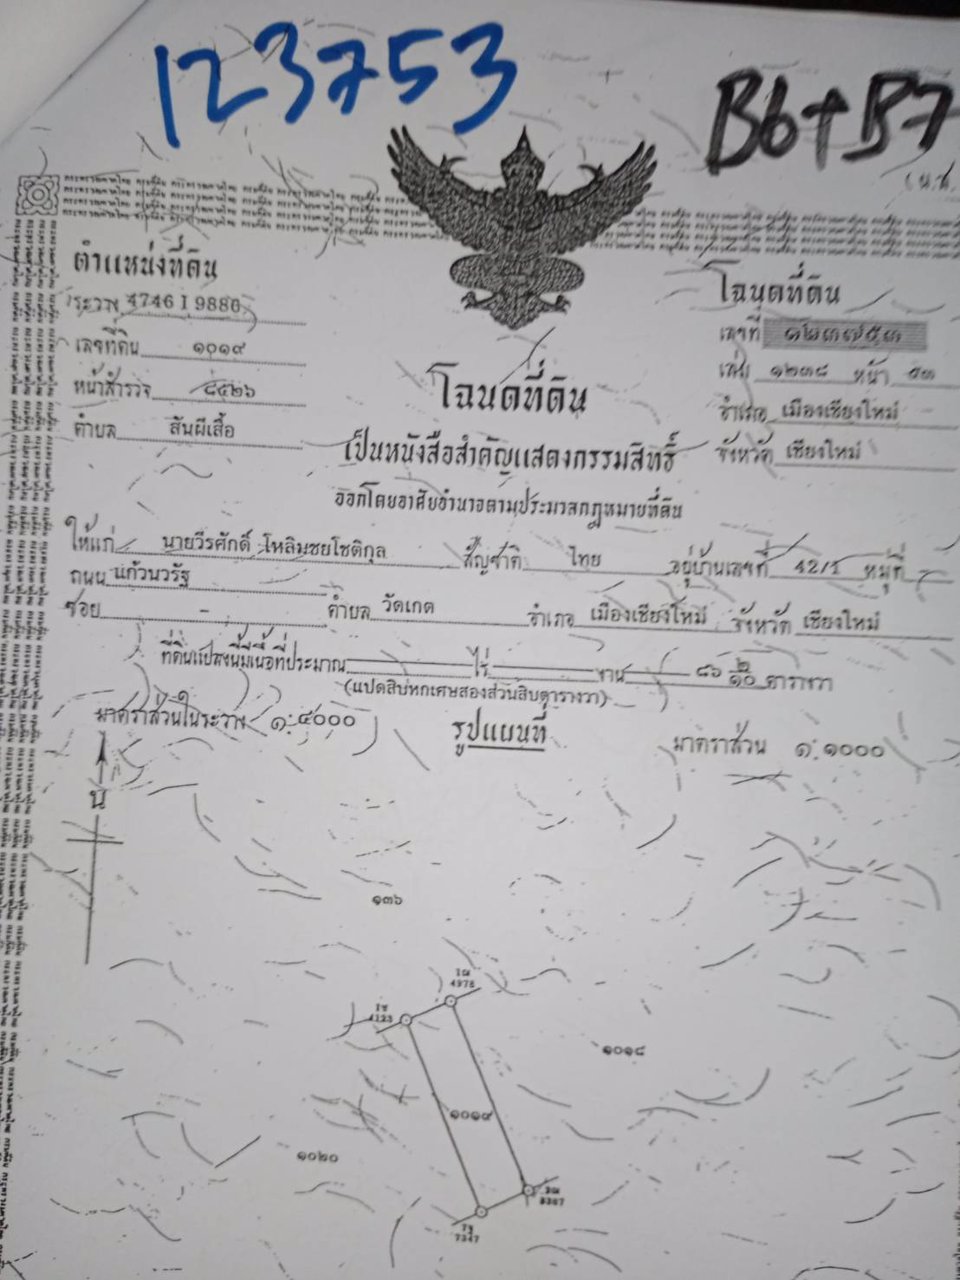 123753
B6+B7
ตำแหน่งที่ดิน
ระวาง 4746 I 9880
เลขที่ดิน ๑๐๑๙
หน้าสำรวจ ๘๔๒๖
ตำบล สันผีเสื้อ
โฉนดที่ดิน
เลขที่ ๑๒๓๗๕๓
เล่ม ๑๒๓๘ หน้า ๕๓
อำเภอ เมืองเชียงใหม่
จังหวัด เชียงใหม่
โฉนดที่ดิน
เป็นหนังสือสำคัญแสดงกรรมสิทธิ์
ออกโดยอาศัยอำนาจตามประมวลกฎหมายที่ดิน
ให้แก่ นายวีรศักดิ์ โหลิมชยโชติกุล สัญชาติ ไทย อยู่บ้านเลขที่ 42/5 หมู่ที่ -
ถนน แก้วนวรัฐ
ซอย - ตำบล วัดเกต อำเภอ เมืองเชียงใหม่ จังหวัด เชียงใหม่
ที่ดินแปลงนี้มีเนื้อที่ประมาณ ไร่ งาน ๘๖ ๒/๑๐ ตารางวา
(แปดสิบหกเศษสองส่วนสิบตารางวา)
มาตราส่วนในระวาง ๑:๔๐๐๐ รูปแผนที่ มาตราส่วน ๑:๑๐๐๐
น
๑๓๖
4978
4123
๑๐๑๘
๑๐๑๙
๑๐๒๐
7347